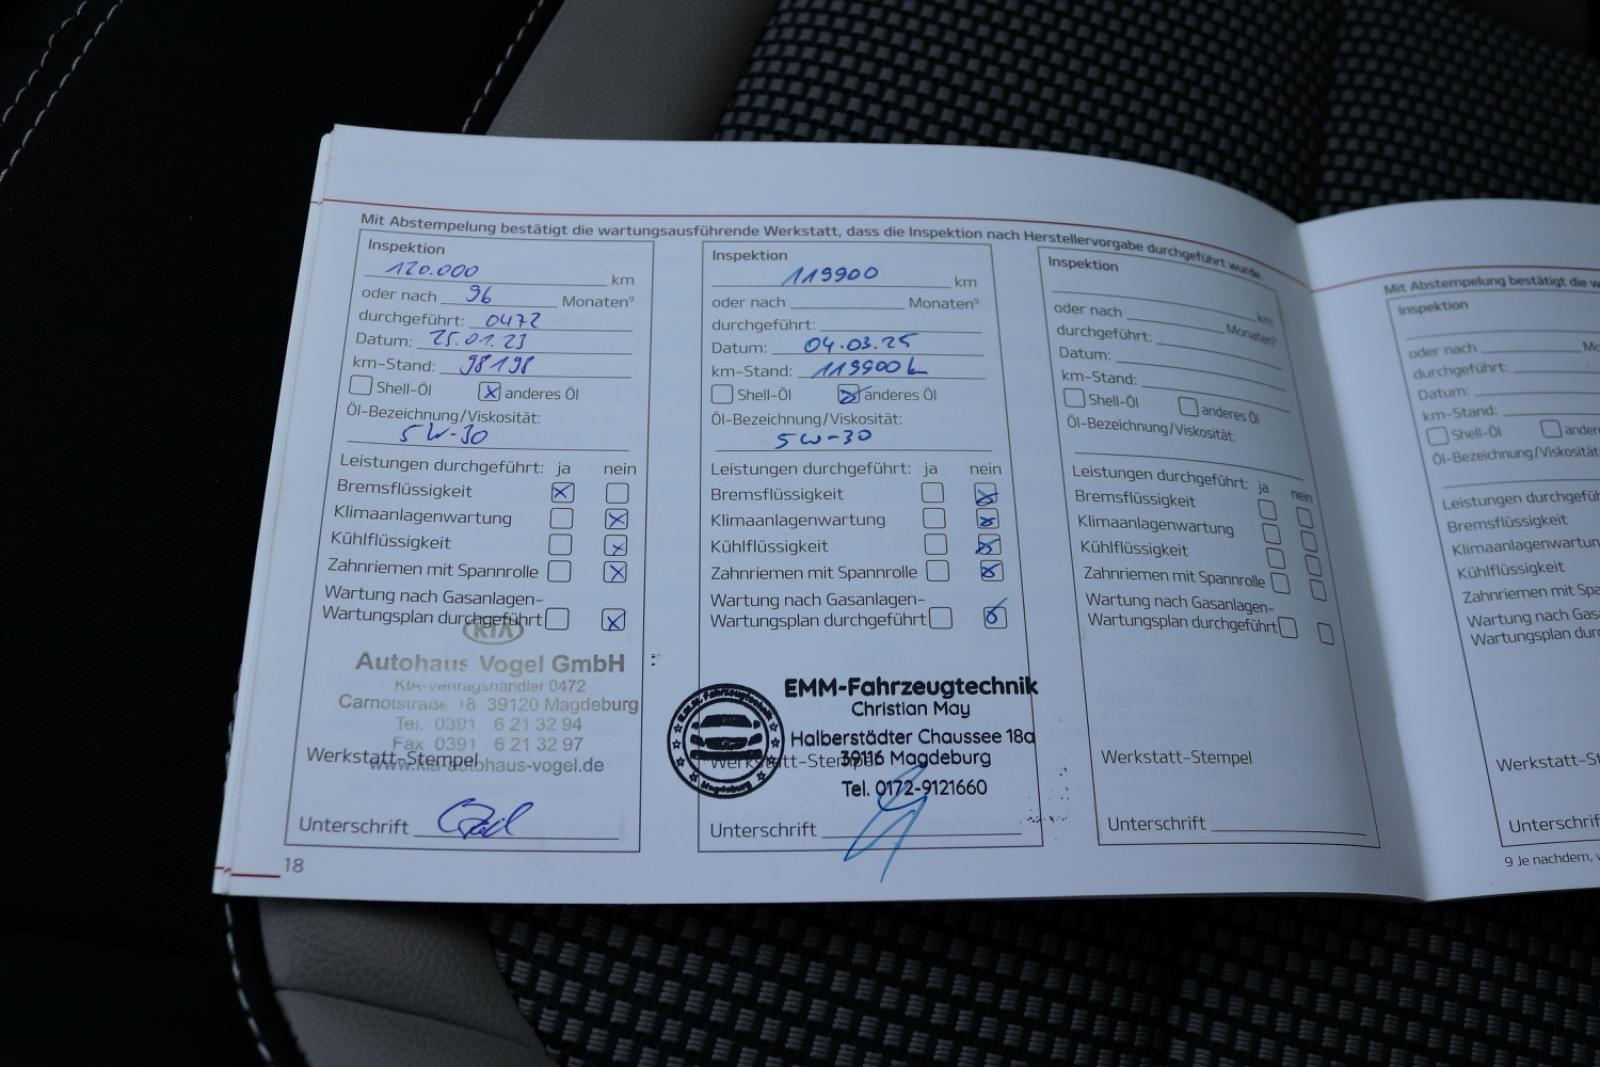 Mit Abstempelung bestätigt die wartungsausführende Werkstatt, dass die Inspektion nach Herstellervorgabe durchgeführt wurde
Inspektion
120.000 km
oder nach 96 Monaten⁹
durchgeführt: 0472
Datum: 25.01.23
km-Stand: 98198
Shell-Öl anderes Öl
Öl-Bezeichnung/Viskosität:
5W-30
Leistungen durchgeführt: ja nein
Bremsflüssigkeit
Klimaanlagenwartung
Kühlflüssigkeit
Zahnriemen mit Spannrolle
Wartung nach Gasanlagen-
Wartungsplan durchgeführt
KIA
Autohaus Vogel GmbH
KIA-Vertragshändler 0472
Carnotstraße 18 39120 Magdeburg
Tel. 0391 6 21 32 94
Fax 0391 6 21 32 97
www.kia-autohaus-vogel.de
Werkstatt-Stempel
Unterschrift
18
Inspektion
119900 km
oder nach Monaten⁹
durchgeführt:
Datum: 04.03.25
km-Stand: 119900 km
Shell-Öl anderes Öl
Öl-Bezeichnung/Viskosität:
5W-30
Leistungen durchgeführt: ja nein
Bremsflüssigkeit
Klimaanlagenwartung
Kühlflüssigkeit
Zahnriemen mit Spannrolle
Wartung nach Gasanlagen-
Wartungsplan durchgeführt
E.M.M. Fahrzeugtechnik
Magdeburg
EMM-Fahrzeugtechnik
Christian May
Halberstädter Chaussee 18a
39116 Magdeburg
Tel. 0172-9121660
Werkstatt-Stempel
Unterschrift
Inspektion
km
oder nach Monaten⁹
durchgeführt:
Datum:
km-Stand:
Shell-Öl anderes Öl
Öl-Bezeichnung/Viskosität:
Leistungen durchgeführt: ja nein
Bremsflüssigkeit
Klimaanlagenwartung
Kühlflüssigkeit
Zahnriemen mit Spannrolle
Wartung nach Gasanlagen-
Wartungsplan durchgeführt
Werkstatt-Stempel
Unterschrift
Mit Abstempelung bestätigt die w
Inspektion
oder nach Mo
durchgeführt:
Datum:
km-Stand:
Shell-Öl andere
Öl-Bezeichnung/Viskosität:
Leistungen durchgefüh
Bremsflüssigkeit
Klimaanlagenwartun
Kühlflüssigkeit
Zahnriemen mit Spa
Wartung nach Gas
Wartungsplan dur
Werkstatt-St
Unterschrif
9 Je nachdem,